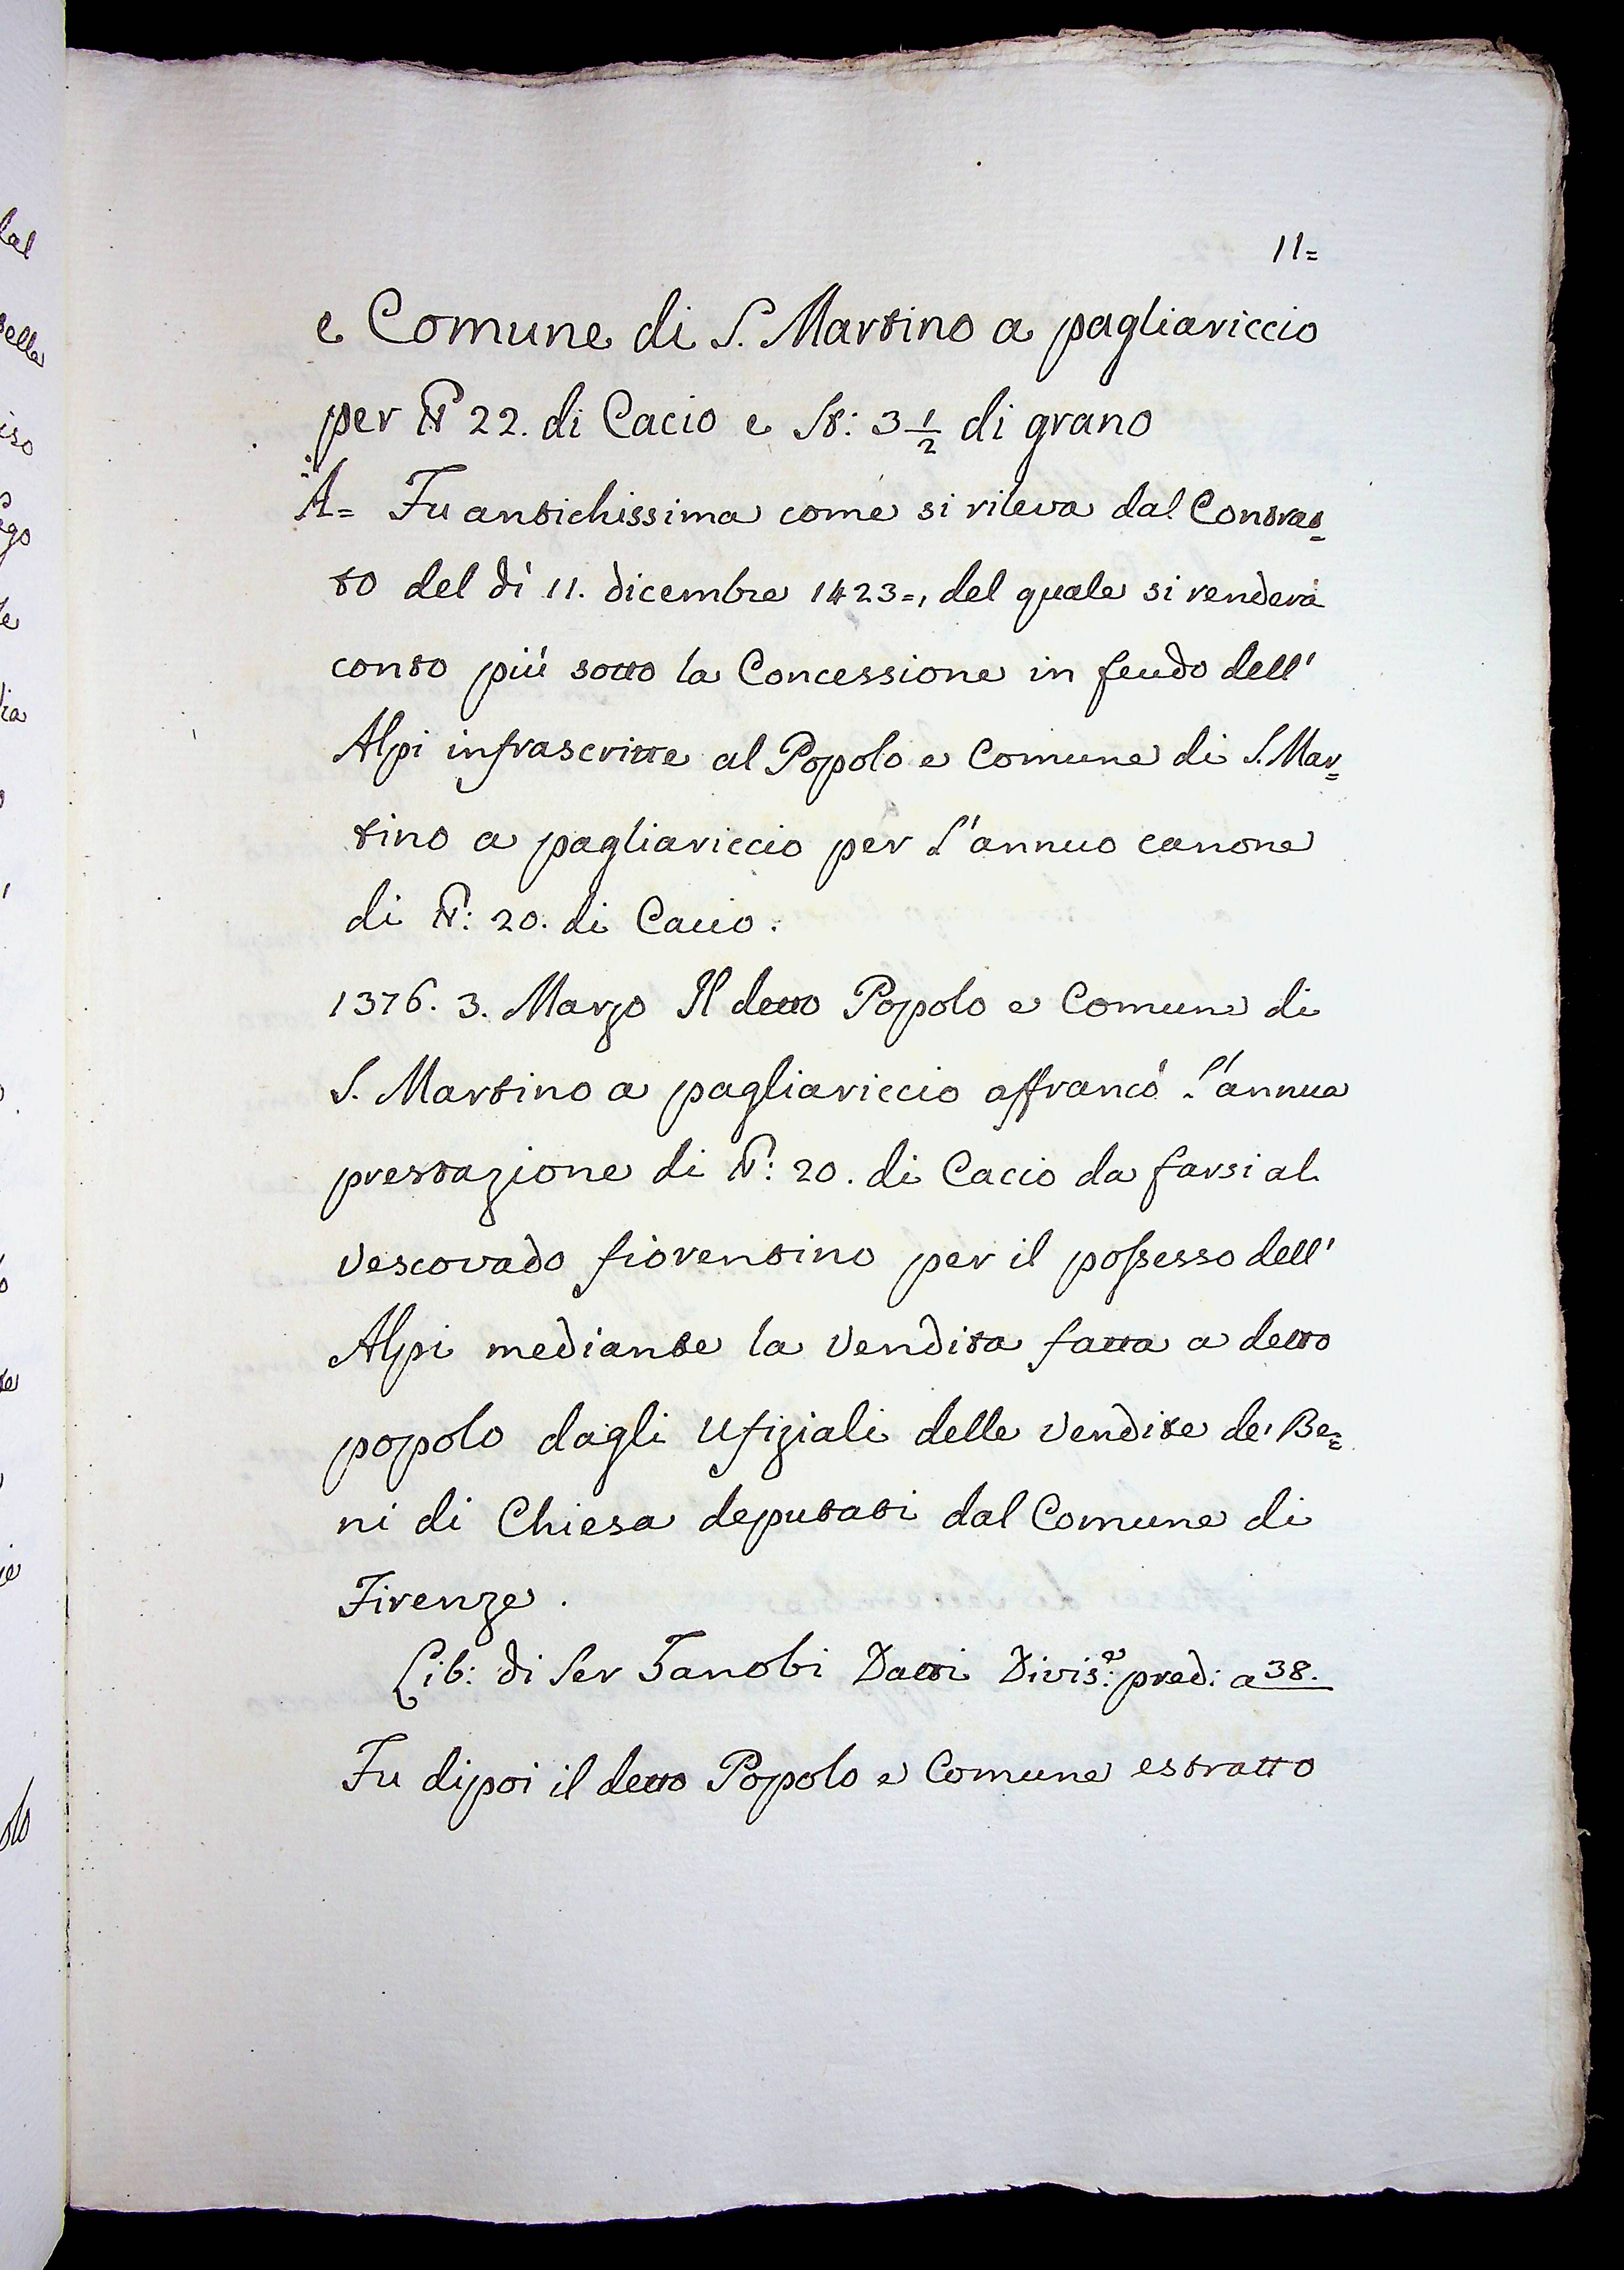 11=
e Comune di S. Martino a pagliariccio
per N° 22. di Cacio e St: 3 1/2 di grano
A= Fu antichissima come si rileva dal Contrat=
to del dì 11. dicembre 1423=, del quale si renderà
conto più sotto la Concessione in feudo dell'
Alpi infrascritte al Popolo e Comune di S. Mar=
tino a pagliariccio per l'annuo canone
di N°: 20. di Cacio.
1376. 3. Marzo Il detto Popolo e Comune di
S. Martino a pagliariccio affrancò l'annua
prestazione di N°: 20. di Cacio da farsi al
Vescovado fiorentino per il possesso dell'
Alpi mediante la Vendita fatta a detto
popolo dagli Ufiziali delle Vendite de' Be=
ni di Chiesa deputati dal Comune di
Firenze.
Lib: di Ser Zanobi Datti Divis.e: pred: a 38.
Fu dipoi il detto Popolo e Comune estratto